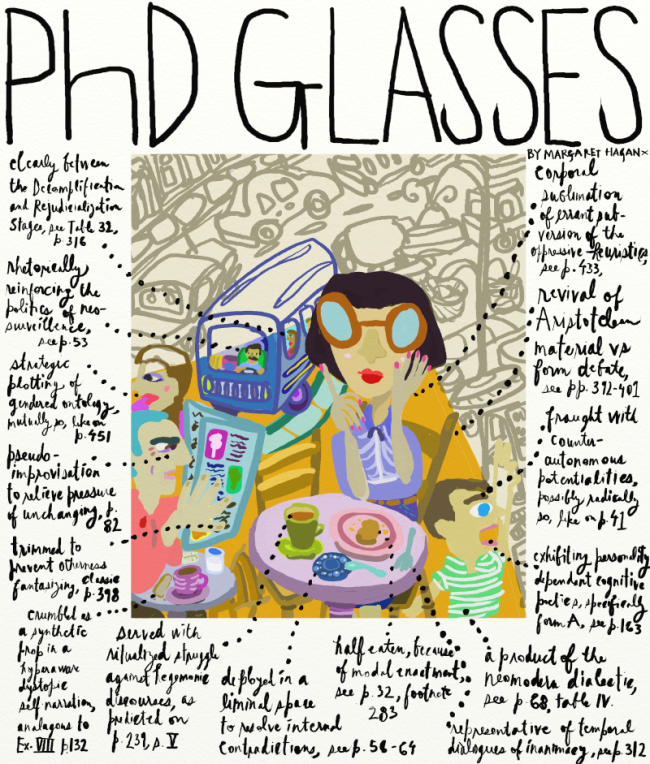 PhD GLASSES
BY MARGARET HAGAN
clearly between
the Decamplification
and Rejudicialization
Stages, see Table 32,
p. 316
rhetorically
reinforcing the
politics of neo-
surveillence,
see p. 53
strategic
plotting of
gendered ontology,
mutually so, like on
p. 451
pseudo-
improvisation
to relieve pressure
of unchanging, p.
82
trimmed to
prevent otherness
fantasizing, classic
p. 398
crumbled as
a synthetic
prop in a
hyperaware
dystopic
self narration,
analogous to
Ex. VIII p 132
served with
ritualized struggle
against hegemonic
discourses, as
predicted on
p. 239, s. V
deployed in a
liminal space
to resolve internal
contradictions, see p. 56-64
half eaten, because
of modal enactment,
see p. 32, footnote
283
a product of the
neomodern dialectic,
see p. 68, table IV.
representative of temporal
dialogues of inanimacy, see p. 312
corporal
sublimation
of errant pat-
version of the
oppressive heuristics,
see p. 433,
revival of
Aristotelean
material vs
form debate,
see pp. 392-401
fraught with
counter-
autonomous
potentialities,
possibly radically
so, like on p. 41
exhibiting personality
dependent cognitive
poetics, specifically
form A, see p. 163